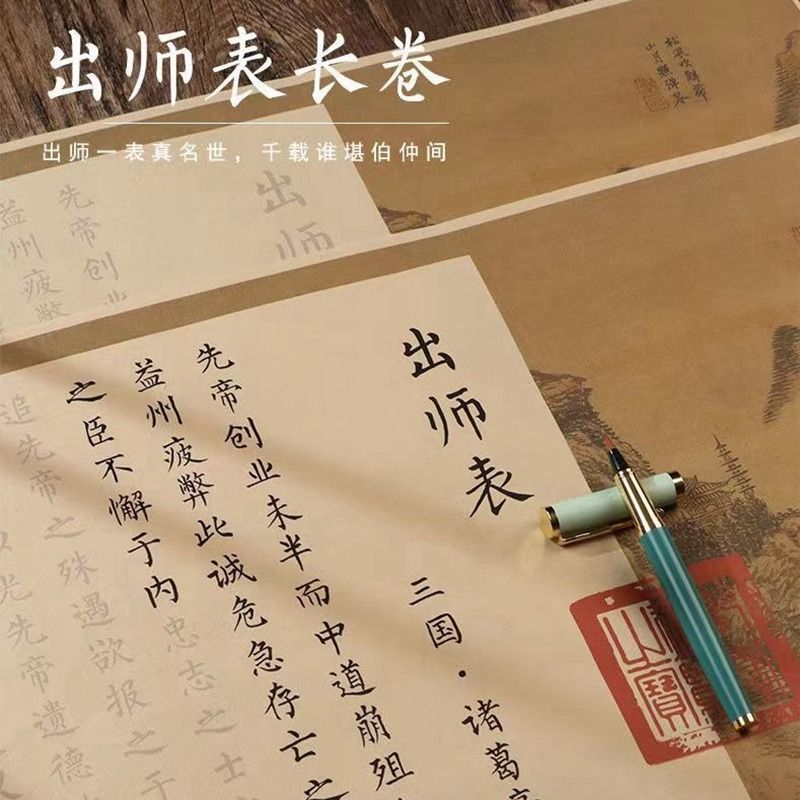 出师表长卷
出师一表真名世，千载谁堪伯仲间
出师表
三国·诸葛
先帝创业未半而中道崩殂
益州疲弊此诚危急存亡之
之臣不懈于内忠志之士
追先帝之殊遇欲报之于
光先帝遗德
出师
先帝创业
益州疲弊
之寶